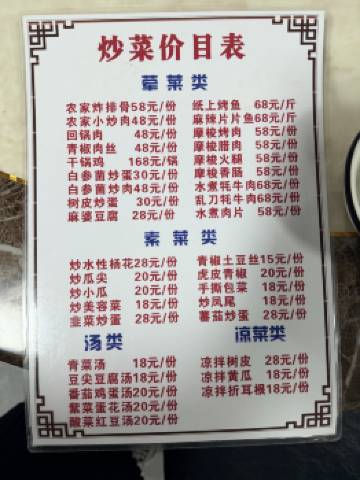 炒菜价目表
荤菜类
农家炸排骨58元/份 纸上烤鱼 68元/斤
农家小炒肉48元/份 麻辣片片鱼68元/份
回锅肉 48元/份 摩梭烤肉 58元/份
青椒肉丝 48元/份 摩梭腊肉 58元/份
干锅鸡 168元/锅 摩梭火腿 58元/份
白参菌炒蛋30元/份 摩梭香肠 58元/份
白参菌炒肉48元/份 水煮牦牛肉68元/份
树皮炒蛋 30元/份 乱刀牦牛肉68元/份
麻婆豆腐 28元/份 水煮肉片 58元/份
素菜类
炒水性杨花28元/份 青椒土豆丝15元/份
炒瓜尖 20元/份 虎皮青椒 20元/份
炒小瓜 20元/份 手撕包菜 18元/份
炒美容菜 18元/份 炒凤尾 18元/份
韭菜炒蛋 28元/份 蕃茄炒蛋 28元/份
汤类 凉菜类
青菜汤 18元/份 凉拌树皮 28元/份
豆尖豆腐汤18元/份 凉拌黄瓜 18元/份
番茄鸡蛋汤20元/份 凉拌折耳根18元/份
紫菜蛋花汤20元/份
酸菜红豆汤20元/份